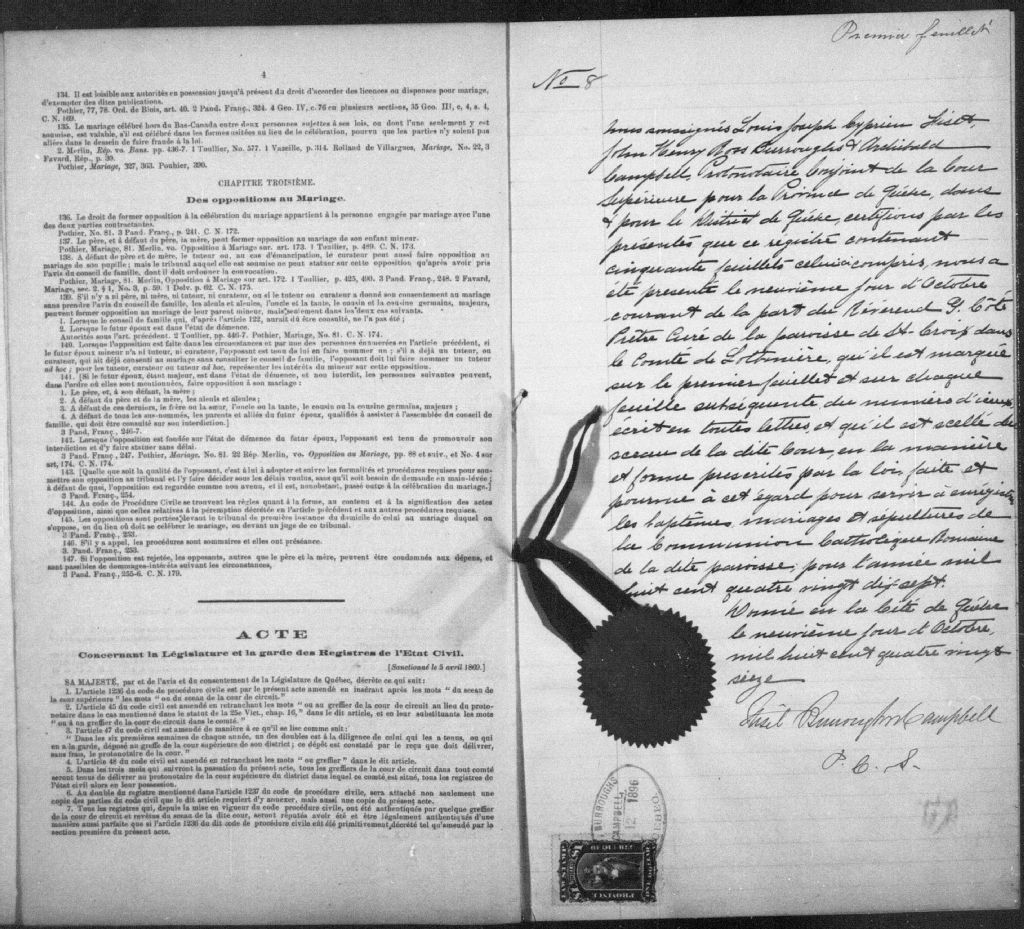 4
134. Il est loisible aux autorités en possession jusqu'à présent du droit d'accorder des licences ou dispenses pour mariage,
d'exempter des dites publications.
Pothier, 77, 78. Ord. de Blois, art. 40. 2 Pand. Franç., 324. 4 Geo. IV, c. 76 en plusieurs sections, 35 Geo. III, c, 4, s. 4,
C. N. 169.
135. Le mariage célébré hors du Bas-Canada entre deux personnes sujettes à ses lois, ou dont l'une seulement y est
soumise, est valable, s'il est célébré dans les formes usitées au lieu de la célébration, pourvu que les parties n'y soient pas
allées dans le dessein de faire fraude à la loi.
2. Merlin, Rép. vo. Bans. pp. 436-7. 1 Toullier, No. 577. 1 Vazeille, p. 314. Rolland de Villargues, Mariage, No. 22, 3
Favard, Rép., p. 39.
Pothier, Mariage, 327, 363. Pouhier, 390.
CHAPITRE TROISIÈME.
Des oppositions au Mariage.
136. Le droit de former opposition à la célébration du mariage appartient à la personne engagée par mariage avec l'une
des deux parties contractantes.
Pothier, No. 81. 3 Pand. Franç., p. 241. C. N. 172.
137. Le père, et à défaut du père, la mère, peut former opposition au mariage de son enfant mineur.
Pothier, Mariage, 81. Merlin. vo. Opposition à Mariage sur. art. 173. 1 Toullier, p. 489. C. N. 173.
138. A défaut de père et de mère, le tuteur ou, au cas d'émancipation, le curateur peut aussi faire opposition au
mariage de son pupille; mais le tribunal auquel elle est soumise ne peut statuer sur cette opposition qu'après avoir pris
l'avis du conseil de famille, dont il doit ordonner la convocation.
Pothier, Mariage, 81. Merlin, Opposition à Mariage sur art. 172. 1 Toullier, p. 425, 490. 3 Pand Franç., 248. 2 Favard,
Mariage, sec. 2. § 1, No. 3, p. 59. 1 Delv. p. 62. C. N. 175.
139. S'il n'y a ni père, ni mère, ni tuteur, ni curateur, ou si le tuteur ou curateur a donné son consentement au mariage
sans prendre l'avis du conseil de famille, les aïeuls et aïeules, l'oncle et la tante, le cousin et la cousine germains, majeurs,
peuvent former opposition au mariage de leur parent mineur, mais seulement dans les deux cas suivants.
1. Lorsque le conseil de famille qui, d'après l'article 122, aurait dû être consulté, ne l'a pas été;
2. Lorsque le futur époux est dans l'état de démence.
Autorités sous l'art. précédent. 2 Toullier, pp. 446-7. Pothier, Mariage, No. 81. C. N. 174.
140. Lorsque l'opposition est faite dans les circonstances et par une des personnes énumérées en l'article précédent, si
le futur époux mineur n'a ni tuteur, ni curateur, l'opposant est tenu de lui en faire nommer un; s'il a déjà un tuteur, ou
curateur, qui ait déjà consenti au mariage sans consulter le conseil de famille, l'opposant doit lui faire nommer un tuteur
ad hoc; pour les tuteur, curateur ou tuteur ad hoc, représenter les intérêts du mineur sur cette opposition.
141. [Si le futur époux, étant majeur, est dans l'état de démence, et non interdit, les personnes suivantes peuvent,
dans l'ordre où elles sont mentionnées, faire opposition à son mariage:
1. Le père, et, à son défaut, la mère;
2. A défaut du père et de la mère, les aïeuls et aïeules;
3. A défaut de ces derniers, le frère ou la sœur, l'oncle ou la tante, le cousin ou la cousine germains, majeurs;
4. A défaut de tous les sus-nommés, les parents et alliés du futur époux, qualifiés à assister à l'assemblée du conseil de
famille, qui doit être consulté sur son interdiction.]
3 Pand. Franç., 246-7.
142. Lorsque l'opposition est fondée sur l'état de démence du futur époux, l'opposant est tenu de promouvoir son
interdiction et d'y faire statuer sans délai.
3 Pand. Franç., 247. Pothier, Mariage. No. 81. 22 Rép. Merlin, vo. Opposition au Mariage, pp. 88 et suiv., et No. 4 sur
art, 174. C. N. 174.
143. [Quelle que soit la qualité de l'opposant, c'est à lui à adopter et suivre les formalités et procédures requises pour sou-
mettre son opposition au tribunal et l'y faire décider sous les délais voulus, sans qu'il soit besoin de demande en main-levée;
à défaut de quoi, l'opposition est regardée comme non avenue, et il est, nonobstant, passé outre à la célébration du mariage.]
3 Pand. Franç., 254.
144. Au code de Procédure Civile se trouvent les règles quant à la forme, au contenu et à la signification des actes
d'opposition, ainsi que celles relatives à la péremption décrétée en l'article précédent et aux autres procédures requises.
145. Les oppositions sont portées devant le tribunal de première instance du domicile de celui au mariage duquel on
s'oppose, ou du lieu où doit se célébrer le mariage, ou devant un juge de ce tribunal.
3 Pand. Franç., 253.
146. S'il y a appel, les procédures sont sommaires et elles ont préséance.
3. Pand. Franç., 253.
147. Si l'opposition est rejetée, les opposants, autres que le père et la mère, peuvent être condamnés aux dépens, et
sont passibles de dommages-intérêts suivant les circonstances,
3 Pand. Franç., 255-6. C. N. 179.
ACTE
Concernant la Législature et la garde des Registres de l'Etat Civil.
[Sanctionné le 5 avril 1869.]
SA MAJESTÉ, par et de l'avis et du consentement de la Législature de Québec, décrète ce qui suit:
1. L'article 1236 du code de procédure civile est par le présent acte amendé en insérant après les mots "du sceau de
la cour supérieure" les mots "ou du sceau de la cour de circuit."
2. L'article 45 du code civil est amendé en retranchant les mots "ou au greffier de la cour de circuit au lieu du proto-
notaire dans le cas mentionné dans le statut de la 25e Vict., chap. 16," dans le dit article, et en leur substituants les mots
"ou à un greffier de la cour de circuit dans le comté."
3. l'article 47 du code civil est amendé de manière à ce qu'il se lise comme suit:
"Dans les six premières semaines de chaque année, un des doubles est à la diligence de celui qui les a tenus, ou qui
en a la garde, déposé au greffe de la cour supérieure de son district; ce dépôt est constaté par le reçu que doit délivrer,
sans frais, le protonotaire de la cour."
4. L'article 48 du code civil est amendé en retranchant les mots "ou greffier" dans le dit article.
5. Dans les trois mois qui suivront la passation du présent acte, tous les greffiers de la cour de circuit dans tout comté
seront tenus de délivrer au protonotaire de la cour supérieure du district dans lequel ce comté est situé, tous les registres de
l'état civil alors en leur possession.
6. Au double du registre mentionné dans l'article 1237 du code de procédure civile, sera attaché non seulement une
copie des parties du code civil que le dit article requiert d'y annexer, mais aussi une copie du présent acte.
7. Tous les registres qui, depuis la mise en vigueur du code procédure civile, ont été authentiqués par quelque greffier
de la cour de circuit et revêtus du sceau de la dite cour, seront réputés avoir été et être légalement authentiqués d'une
manière aussi parfaite que si l'article 1236 du dit code de procédure civile eût été primitivement décrété tel qu'amendé par la
section première du présent acte.
Premier feuillet
No 8
Nous soussignés Louis Joseph Cyprien Fiset,
John Henry Ross Burroughs & Archibald
Campbell, Protonotaire Conjoint de la Cour
Supérieure pour la Province de Québec, dans
& pour le District de Québec, certifions par les
présentes que ce registre contenant
cinquante feuillets celui-ci compris, nous a
été présenté le neuvième jour d'Octobre
courant de la part du Révérend G. Côté
Prêtre Curé de la paroisse de St. Croix dans
le Comté de Lotbinière, qu'il est marqué
sur le premier feuillet et sur chaque
feuille subséquente, du numéro d'iceux
écrit en toutes lettres, et qu'il est scellé du
sceau de la dite Cour, en la manière
et forme prescrites par la loi, faite et
pourvue à cet égard pour servir à enregistrer
les baptêmes, mariages et sépultures de
la Communion Catholique Romaine
de la dite paroisse, pour l'année mil
huit cent quatre vingt dix-sept.
Donné en la Cité de Québec
le neuvième jour d'Octobre,
mil huit cent quatre vingt
seize
Fisil Burroughs & Campbell
P. C. S.
BURROUGHS
CAMPBELL
12 1896
LAW STAMP
PROVINCE